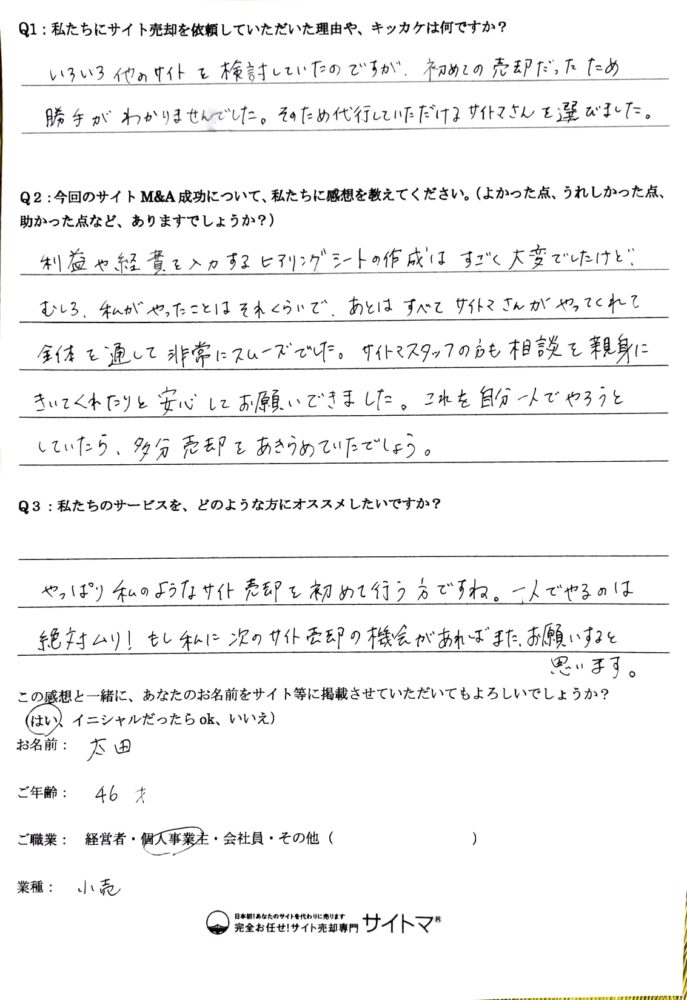 Q1:私たちにサイト売却を依頼していただいた理由や、キッカケは何ですか?
いろいろ他のサイトを検討していたのですが、初めての売却だったため
勝手がわかりませんでした。そのため代行していただけるサイトマさんを選びました。
Q2:今回のサイトM&A成功について、私たちに感想を教えてください。(よかった点、うれしかった点、
助かった点など、ありますでしょうか?)
利益や経費を入力するヒアリングシートの作成はすごく大変でしたけど、
むしろ、私がやったことはそれくらいで、あとはすべてサイトマさんがやってくれて
全体を通して非常にスムーズでした。サイトマスタッフの方も相談を親身に
きいてくれたりと安心してお願いできました。これを自分一人でやろうと
していたら、多分売却をあきらめていたでしょう。
Q3:私たちのサービスを、どのような方にオススメしたいですか?
やっぱり私のようなサイト売却を初めて行う方ですね。一人でやるのは
絶対ムリ!もし私に次のサイト売却の機会があればまた、お願いすると
思います。
この感想と一緒に、あなたのお名前をサイト等に掲載させていただいてもよろしいでしょうか?
(はい、イニシャルだったらok、いいえ)
お名前: 太田
ご年齢: 46才
ご職業: 経営者・個人事業主・会社員・その他( )
業種: 小売
日本初!あなたのサイトを代わりに売ります
完全お任せ!サイト売却専門 サイトマ®